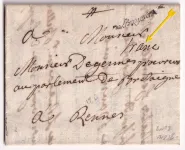 A
Monsieur
franc
Monsieur Degennes procureur
au parlement de Bretaigne
A Rennes